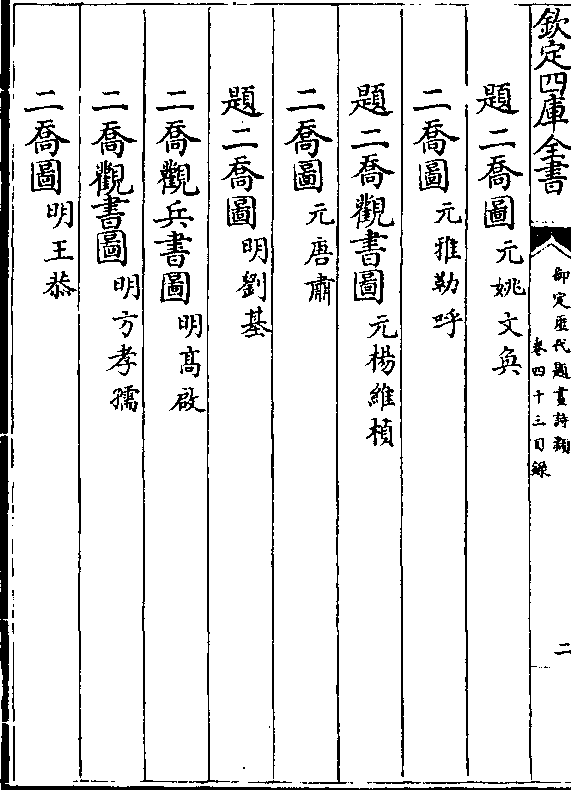 欽定四庫全書
御定歷代題畫詩類
卷四十三目錄
二
題二喬圖 元姚文奐
二喬圖 元雅勒呼
題二喬觀書圖 元楊維楨
二喬圖 元唐肅
題二喬圖 明劉基
二喬觀兵書圖 明高啟
二喬觀書圖 明方孝孺
二喬圖 明王恭